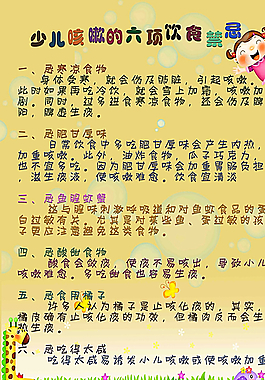 少儿咳嗽的六项饮食禁忌
一、忌寒凉食物
身体受寒，就会伤及肺脏，引起咳嗽。
此时如果再吃冷饮，就会雪上加霜，咳嗽加
剧。同时，过多进食寒凉食物，还会伤及脾
阳，脾虚生痰。
二、忌肥甘厚味
日常饮食中多吃肥甘厚味会产生内热，
加重咳嗽。此外，油炸食物，瓜子巧克力，
也不宜多吃，因为肥甘厚味会加重胃肠负担，
滋生痰液，使咳嗽难愈，饮食宜清淡
三、忌鱼腥虾蟹
这与腥味刺激呼吸道和对鱼虾食品的蛋
白过敏有关，尤其是对那些鱼、蛋过敏的孩
子更应注意避免这类食物。
四、忌酸甜食物
酸食会敛痰，使痰不易咳出，导致小儿
咳嗽难愈，多吃甜食也容易生痰。
五、忌食用橘子
许多人认为橘子是止咳化痰的，其实，
橘皮确有止咳化痰的功效，但橘肉反而会生
热生痰。
六、忌吃得太咸
吃得太咸易诱发小儿咳嗽或使咳嗽加重